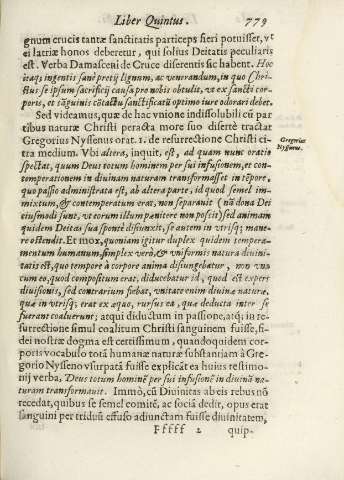 Liber Quintus. 779
gnum crucis tantæ sanctitatis particeps fieri potuisset, vt
ei latriæ honos deberetur, qui solius Deitatis peculiaris
est. Verba Damasceni de Cruce disserentis sic habent. Hoc
itaq; ingentis sanè pretij lignum, ac venerandum, in quo Chri-
stus se ipsum sacrificij causa pro nobis obtulit, vt ex sancti cor-
poris, et sāguinis cōtactu sanctificatū optimo iure odorari debet.
Sed videamus, quæ de hac vnione indissolubili cū par
tibus naturæ Christi peracta more suo disertè tractat
Gregorius Nyssenus orat. 1. de resurrectione Christi ci-
tra medium. Vbi altera, inquit, est, ad quam nunc oratio
spectat, quum Deus totum hominem per sui infusionem, et con-
temperationem in diuinam naturam transformasset in tēpore,
quo passio administrata est, ab altera parte, id quod semel im-
mixtum, & contemperatum erat, non separauit (nā dona Dei
eiusmodi sunt, vt eorum illum pœnitere non possit) sed animam
quidem Deitas sua sponte disiunxit, se autem in vtrisq; mane-
re ostendit. Et mox, quoniam igitur duplex quidem tempera-
mentum humanum, simplex verò, & vniformis natura diuini-
tatis est, quo tempore à corpore anima disiungebatur, non vnà
cum eo, quod compositum erat, diducebatur id, quod est expers
diuisionis, sed contrarium fiebat, vnitate enim diuinæ naturæ,
quæ in vtrisq; erat ex æquo, rursus ea, quæ deducta inter se
fuerant coaluerunt; atqui diductum in passione, atq; in re-
surrectione simul coalitum Christi sanguinem fuisse, fi-
dei nostræ dogma est certissimum, quandoquidem cor-
poris vocabulo totā humanæ naturæ substantiam à Gre-
gorio Nysseno vsurpatā fuisse explicāt ea huius testimo-
nij verba, Deus totum hominē per sui infusionē in diuinā na-
turam transformauit. Immò, cū Diuinitas ab eis rebus nō
recedat, quibus se semel comitē, ac sociā dedit, opus erat
sanguini per triduū effuso adiunctam fuisse diuinitatem,
Fffff 2 quip-
Gregorius
Nyssenus.